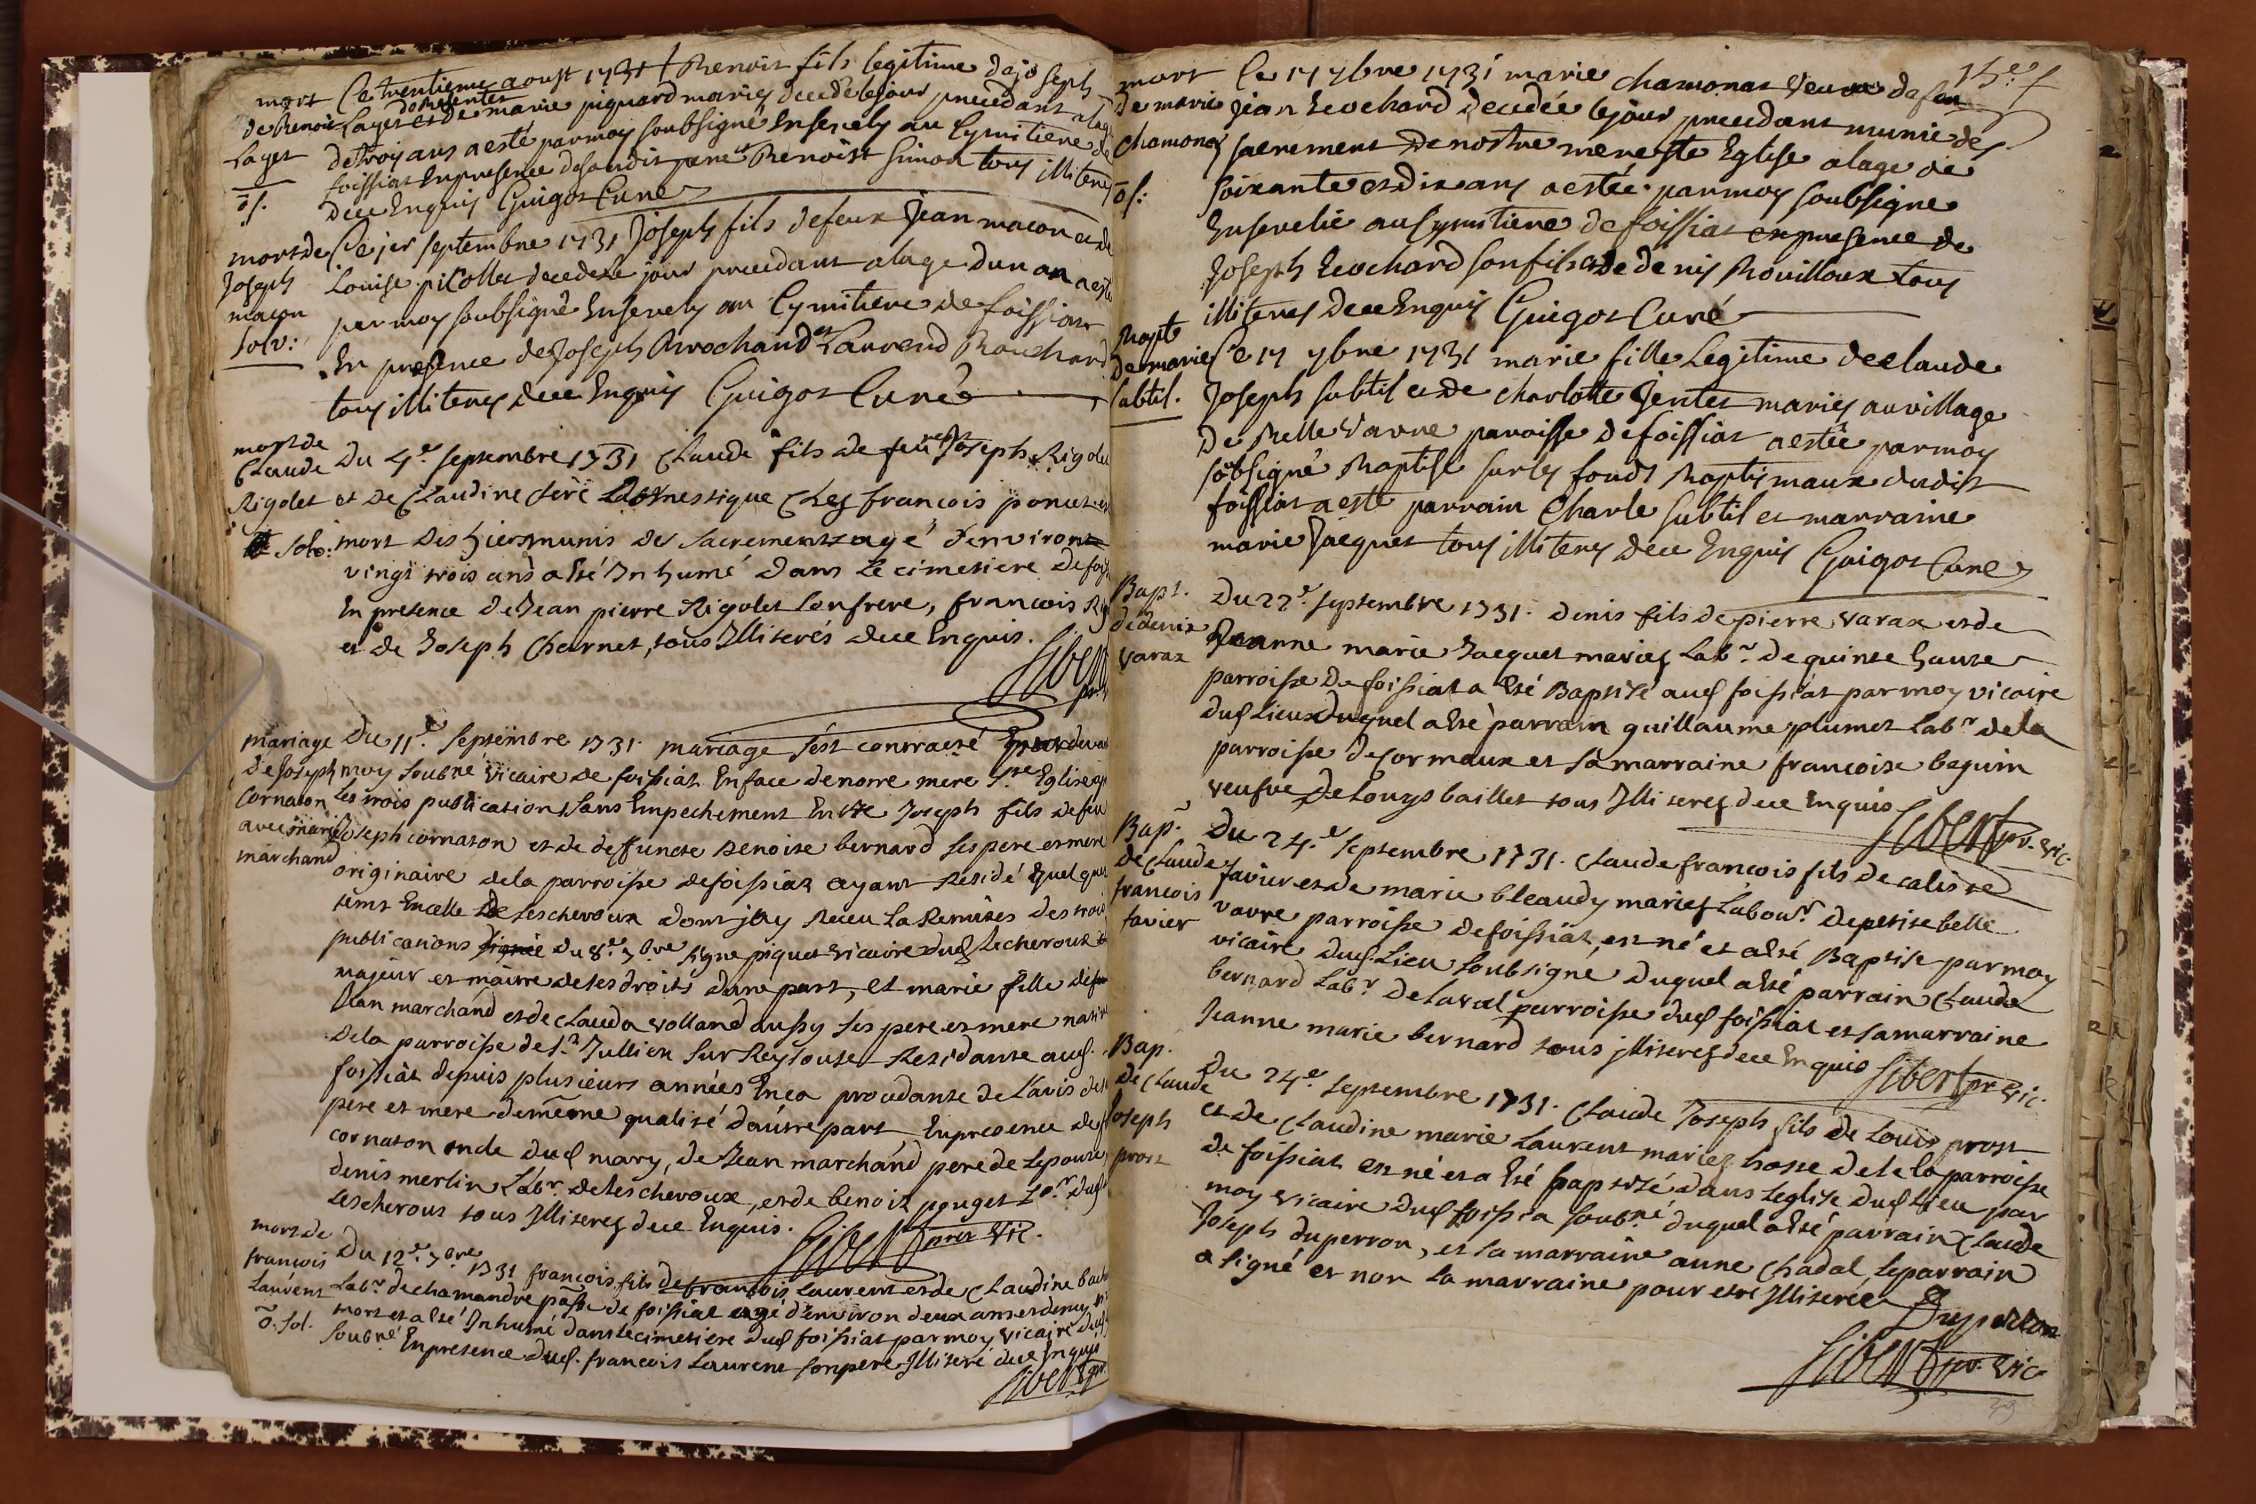 mort de Benoit Lager
o s.
Ce trentieme aoust 1731 Benoit fils legitime de joseph
Lager et de marie piquard mariés decedé le jour precedant a lage
de troy ans a esté par moy soubsigné Ensevely au Cymitiere de
foissiat En presence de sondit pere et Benoist Simon tous illiteres
de ce Enquis Guigot Curé
mort de Joseph maçon
solv:
Ce jer septembre 1731 Joseph fils de feux Jean macon et de
Louise picollet decedé le jour precedant a lage dun an a esté
par moy soubsigné Ensevely au Cymitiere de foissiat
En presence de Joseph Brochand et Laurend Bouchard
tous illiteres de ce Enquis Guigot Curé
mort de Claude Rigolet
solv:
Du 4e. septembre 1731 Claude fils de feu Joseph Rigolet
et de Claudine feré Domestique Chez francois poncet
mort des hier munis des sacrements agé d'environ
vingt trois ans a Eté Inhumé dans le cimetiere de foiss
En presence de Jean pierre Rigolet son frere, francois
et de Joseph Charnet, tous Illiterés de ce Enquis.
Sibert
mariage de Joseph Cornaton avec marie marchand
Du 11e. Septembre 1731. mariage s'est contracté
moy soubné vicaire de foissiat En face de notre mere Ste Eglise
Les trois publications sans Empechement Entre Joseph fils de feu
Joseph cornaton et de deffuncte Benoite bernard ses pere et mere
originaire de la parroisse de foissiat ayant residé quelque
tems En celle de Lescheroux dont j'ay Receu La Remises des trois
publications du 8e. 7bre signé piquet vicaire dud Lecheroux
majeur et maitre de ses droits d'une part, et marie fille de
Jean marchand et de Clauda volland aussy ses pere et mere native
De la parroisse de St Jullien sur Reyssouse Residante aud.
foissiat depuis plusieurs années En ca procedante de L'avis de
pere et mere de même qualité d'autre part En presence de
cornaton oncle dud mary, de Jean marchand pere de Lepouse
denis merlin Labr. de Lescheroux, et de benoit pouget Labr. dud
Lescheroux tous Illiteres de ce Enquis.
Sibert prer vic.
mort de francois Laurent
o. sol.
Du 12e. 7bre 1731 francois fils de francois Laurent et de Claudine
Labr de chamandre passe de foissiat agé d'environ deux ans et demy
mort et a Eté Inhumé dans le cimetiere dud foissiat par moy vicaire dud
soubné En presence dud. francois Laurent son pere Illiteré de ce Enquis
Sibert
mort de marie Chamonay
o s:
Ce 17 7bre 1731 marie Chamonas veuve de feu
Jean Bochard decedée le jour precedant munie des
sacrement de nostre mere ste Eglise a lage de
soixante et dix ans a estée par moy soubsigne
Ensevelie au Cymitiere de foissiat en presence de
Joseph Bochard son fils et de denis Rouilloux tous
illiteres de ce Enquis Guigot Curé
Bapte de marie subtil.
Ce 17 7bre 1731 marie fille Legitime de claude
Joseph subtil et de charlotte Jentet mariés au village
de Belle Vavre paroisse de foissiat a estée par moy
soubsigné Baptisé sur les fonds Baptismaux dudit
foissiat a esté parrain Charle subtil et marraine
marie Jacquet tous illiteres de ce Enquis Guigot Curé
Bapt. de denis varax
Du 22e. septembre 1731. denis fils de pierre varax et de
Jeanne marie Jacquet mariez Labr. de quinte haute
parroisse de foissiat a Eté Baptisé aud foissiat par moy vicaire
dud Lieux Duquel a Eté parrain guillaume plumet Labr. de la
parroisse de Cormoux et sa marraine francoise beguin
veufve de Louys baillet tous Illiteres de ce Enquis
Sibert pr. vic.
Bap. de Claude francois favier
Du 24e. septembre 1731. Claude francois fils de calis te
favier et de marie bleaudy mariez Labour. de petite belle
vavre parroisse de foissiat, est né et a Eté Baptisé par moy
vicaire dud Lieu soubsigné duquel a Eté parrain Claude
bernard Labr. de Laval parroisse dud foissiat et sa marraine
Jeanne marie bernard tous jlliteres de ce Enquis Sibert pr vic.
Bap. de Claude Joseph prost
Du 24e. septembre 1731. Claude Joseph fils de Louis prost
et de Claudine marie Laurent mariez hoste de la parroisse
de foissiat est né et a Eté baptisé dans Leglise dud Lieu par
moy vicaire dud foissia soubné duquel a Eté parrain Claude
Joseph duperron, et sa marraine anne Chadal, le parrain
a signé et non la marraine pour etre Illiteree Duperron
Sibert pr. vic